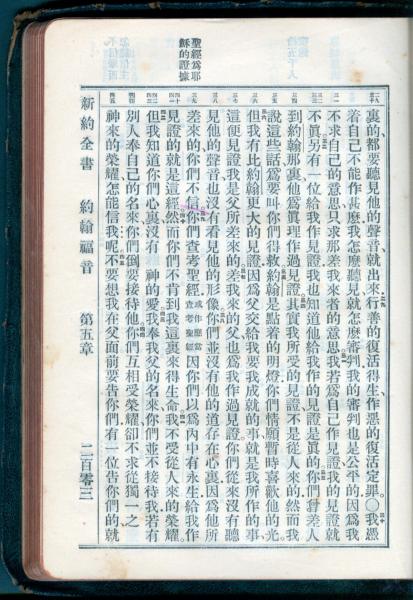 聖經爲耶
穌的證據
裏的都要聽見他的聲音、就出來行善的復活得生作惡的復活定罪○我憑
着自己不能作甚麼我怎麼聽見就怎麼審判我的審判也是公平的因爲我
不求自己的意思只求那差我來者的意思我若爲自己作見證我的見證就
不眞另有一位給我作見證我也知道他給我作的見證是眞的你們曾差人
到約翰那裏他爲眞理作過見證其實我所受的見證不是從人來的然而我
說這些話爲要叫你們得救約翰是點着的明燈你們情願暫時喜歡他的光。
但我有比約翰更大的見證因爲父交給我要我成就的事就是我所作的事、
這便見證我是父所差來的差我來的父也爲我作過見證你們從來沒有聽
見他的聲音也沒有看見他的形像你們並沒有他的道存在心裏因爲他所
差來的你們不信你們查考聖經或作應當查考聖經因你們以爲內中有永生給我作
見證的就是這經然而你們不肯到我這裏來得生命我不受從人來的榮耀。
但我知道你們心裏沒有 神的愛我奉我父的名來你們並不接待我若有
別人奉自己的名來你們倒要接待他你們互相受榮耀卻不求從獨一之
神來的榮耀怎能信我呢不要想我在父面前要告你們有一位告你們的就
新約全書 約翰福音 第五章 二百零三